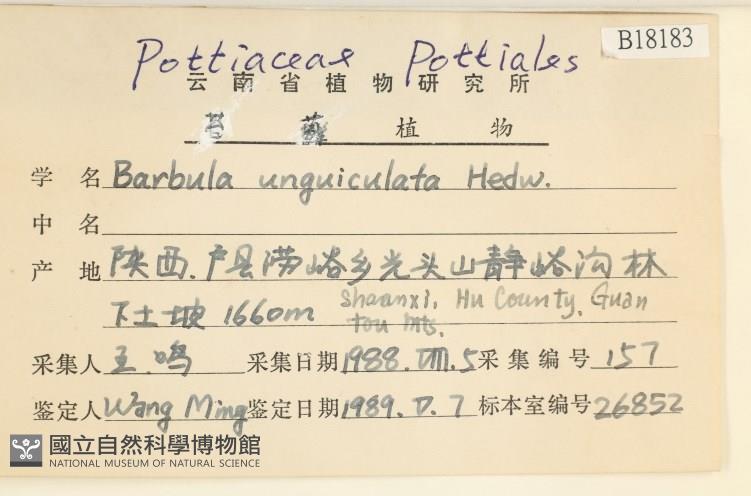 B18183
Pottiaceae Pottiales
云南省植物研究所
苔藓植物
学名 Barbula unguiculata Hedw.
中名
产地 陕西.户县涝峪乡光头山静峪沟林
下土坡 1660m Shaanxi, Hu County, Guan
tou Mts.
采集人 王鸣 采集日期 1988.VIII.5 采集编号 157
鉴定人 Wang Ming 鉴定日期 1989.V.7 标本室编号 26852
國立自然科學博物館
NATIONAL MUSEUM OF NATURAL SCIENCE